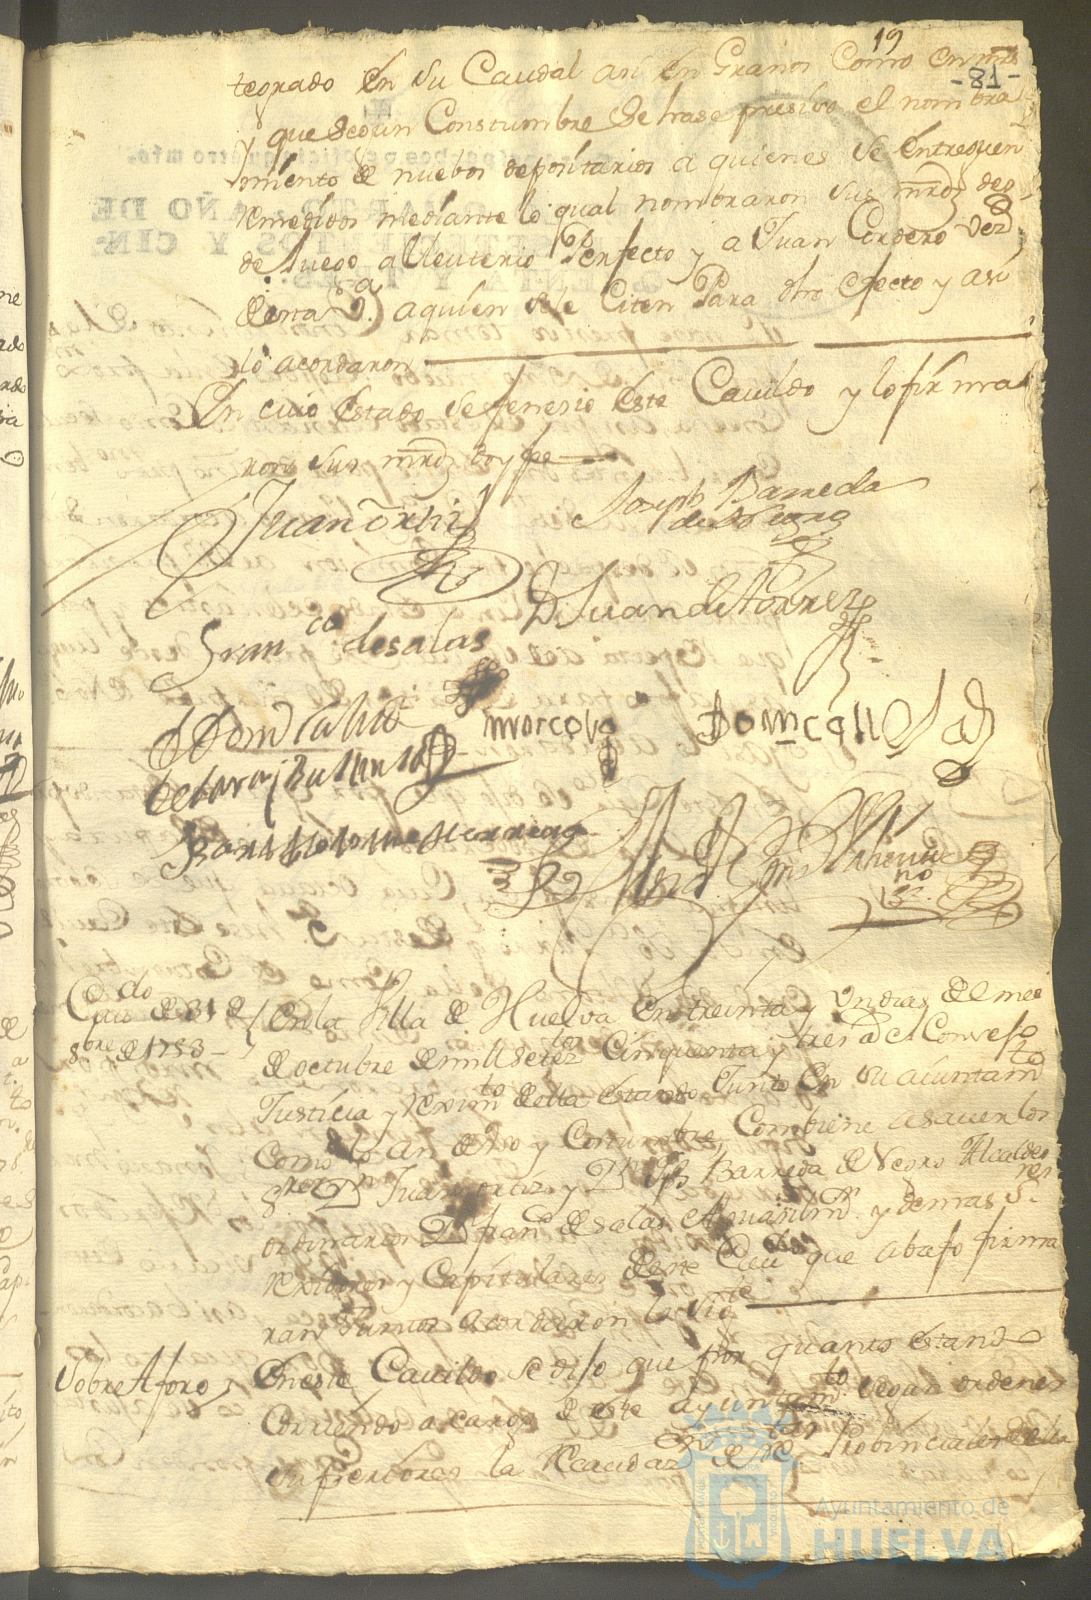 19
-81-
tegrado En su Caudal asi En Granos Como en mrs
y que segun Constumbre se hase presiso el nombra
miento de nuebos depositarios a quienes se entreguen
remedidos mediante lo qual nombraron sus mrds des
de luego a Eleuterio Perfecto y a Juan Cordero vezs
desta va. aquien se le Citen Para dho efecto y asi
lo acordaron
En cuio Estado se fenesio Este Cavildo y lo firma
ron sus mrds doy fe
Juan Ortiz
Joseph Barreda
de Negro
D. Juan de Torres
Franco de salas
Marcelo
Domi
de Lara y
Bartholome Herrera
Cavdo de 31 de
8bre de 1753
En la Villa de Huelva en treinta y Un dias del mes
de octubre de mill setezos Cinquenta y tres as el Consejo
Justicia y Reximto della estando Junto En su aiuntamto
Como lo an de Uso y Costumbre Combiene a saver los
Sres Dn Juan ortiz y Dn Jph Barreda de Negro Alcaldes
ordinarios Dn Franco de salas y demas Sres
Rexidores y Capitulares deste que abajo firma
ran Juntos acordaron lo sigte
Sobre Aforo
En este Cavildo se dijo que por quanto estand
Corriendo a cargo de este ayuntamto segun ordenes
superiores la Recaudaz de Rtas Probinciales della
Ayuntamiento de
HUELVA